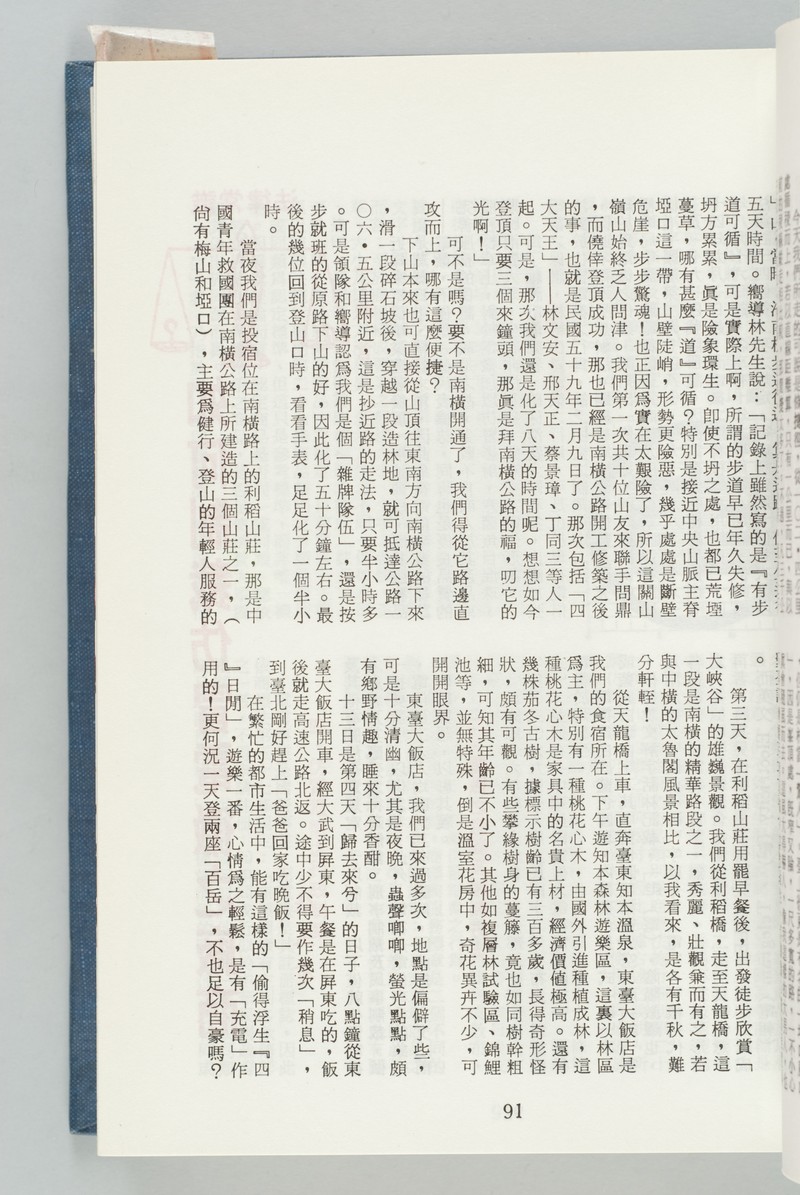 五天時間。嚮導林先生說:「記錄上雖然寫的是『有步
道可循』,可是實際上啊,所謂的步道早已年久失修,
坍方累累,眞是險象環生。卽使不坍之處,也都已荒堙
蔓草,哪有甚麼『道』可循?特別是接近中央山脈主脊
埡口這一帶,山壁陡峭,形勢更險惡,幾乎處處是斷壁
危崖,步步驚魂!也正因爲實在太艱險了,所以這關山
嶺山始終乏人問津。我們第一次共十位山友來聯手問鼎
,而僥倖登頂成功,那也已經是南橫公路開工修築之後
的事,也就是民國五十九年二月九日了。那次包括「四
大天王」——林文安、邢天正、蔡景璋、丁同三等人一
起。可是,那次我們還是化了八天的時間呢。想想如今
登頂只要三個來鐘頭,那眞是拜南橫公路的福,叨它的
光啊!」
可不是嗎?要不是南橫開通了,我們得從它路邊直
攻而上,哪有這麼便捷?
下山本來也可直接從山頂往東南方向南橫公路下來
,滑一段碎石坡後,穿越一段造林地,就可抵達公路一
〇六・五公里附近,這是抄近路的走法,只要半小時多
。可是領隊和嚮導認爲我們是個「雜牌隊伍」,還是按
步就班的從原路下山的好,因此化了五十分鐘左右。最
後的幾位回到登山口時,看看手表,足足化了一個半小
時。
當夜我們是投宿位在南橫路上的利稻山莊,那是中
國青年救國團在南橫公路上所建造的三個山莊之一,(
尙有梅山和埡口),主要爲健行、登山的年輕人服務的
。
第三天,在利稻山莊用罷早餐後,出發徒步欣賞「
大峽谷」的雄巍景觀。我們從利稻橋,走至天龍橋,這
一段是南橫的精華路段之一,秀麗、壯觀兼而有之,若
與中橫的太魯閣風景相比,以我看來,是各有千秋,難
分軒輊!
從天龍橋上車,直奔臺東知本溫泉,東臺大飯店是
我們的食宿所在。下午遊知本森林遊樂區,這裏以林區
爲主,特別有一種桃花心木,由國外引進種植成林,這
種桃花心木是家具中的名貴上材,經濟價值極高。還有
幾株茄冬古樹,據標示樹齡已有三百多歲,長得奇形怪
狀,頗有可觀。有些攀緣樹身的蔓籐,竟也如同樹幹粗
細,可知其年齡已不小了。其他如複層林試驗區、錦鯉
池等,並無特殊,倒是溫室花房中,奇花異卉不少,可
開開眼界。
東臺大飯店,我們已來過多次,地點是偏僻了些,
可是十分清幽,尤其是夜晚,蟲聲唧唧,螢光點點,頗
有鄉野情趣,睡來十分香甜。
十三日是第四天「歸去來兮」的日子,八點鐘從東
臺大飯店開車,經大武到屏東,午餐是在屏東吃的,飯
後就走高速公路北返。途中少不得要作幾次「稍息」,
到臺北剛好趕上「爸爸回家吃晚飯!」
在繁忙的都市生活中,能有這樣的「偷得浮生『四
』日閒」,遊樂一番,心情爲之輕鬆,是有「充電」作
用的!更何況一天登兩座「百岳」,不也足以自豪嗎?
91